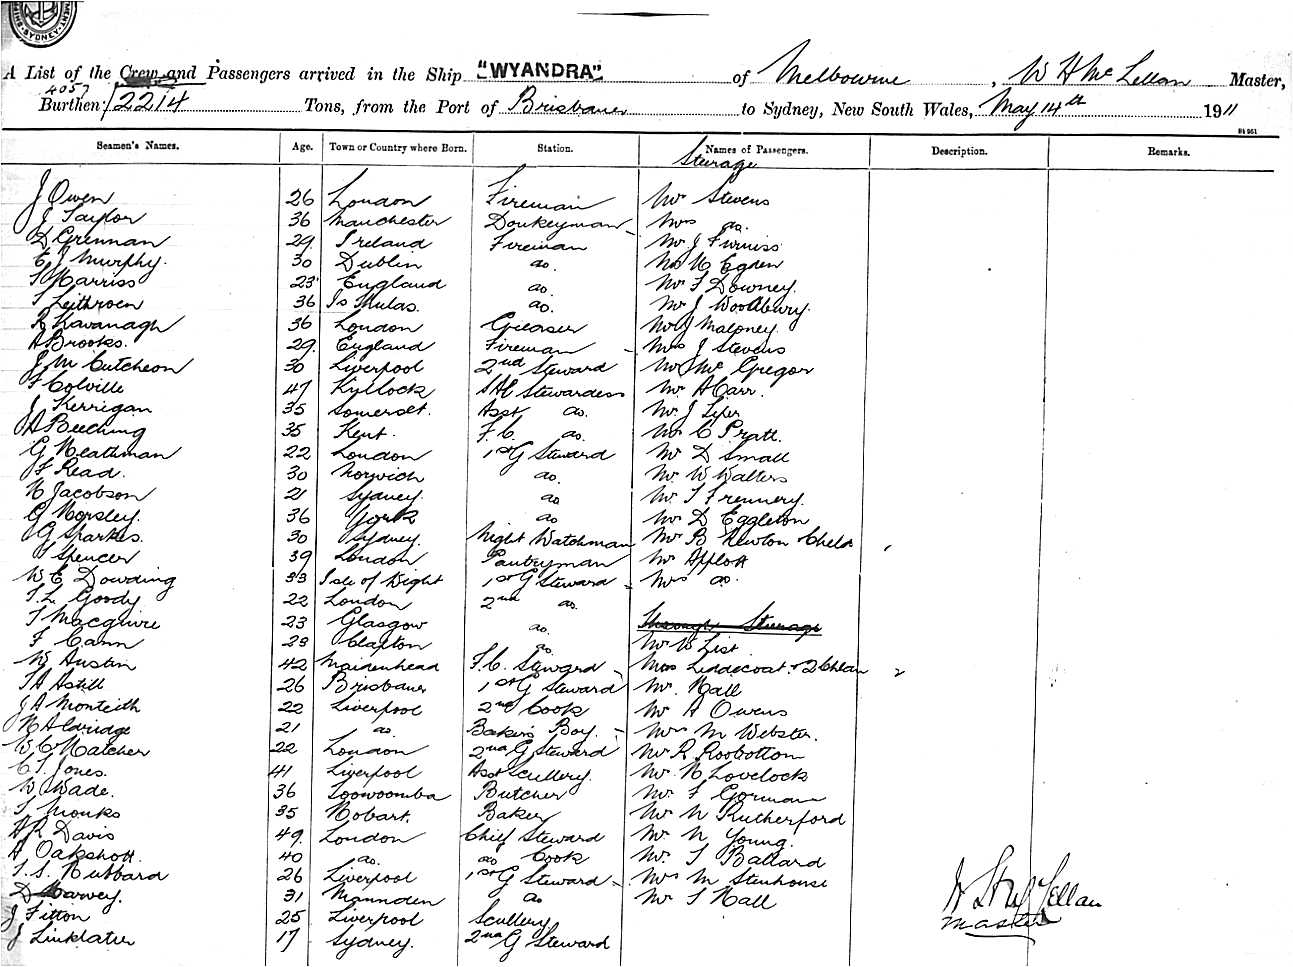 SYDNEY
A List of the Crew and Passengers arrived in the Ship "WYANDRA" of Melbourne, W H McLellan Master,
4057
Burthen 2214 Tons, from the Port of Brisbane to Sydney, New South Wales, May 14th 1911
Seamen's Names. Age. Town or Country where Born. Station. Names of Passengers. Description. Remarks.
Steerage
J Owen 26 London Fireman Mr Stevens
J Taylor 36 Manchester Donkeyman Mrs do.
D Grennan 29 Ireland Fireman Mr J Furniss
E J Murphy. 30 Dublin do. Mr Egden
Harriss 23 England do. Mr F Downey.
36 Is Mulas. do. Mr J Woodbury.
R Kavanagh 36 London Greaser Mr J Maloney.
A Brooks. 29 England Fireman Mrs J Stevens
J McCutcheon 30 Liverpool 2nd Steward Mr McGregor
F Colville 47 Kyllock Stewardess Mr A Carr.
J Kerrigan 35 Somerset. Asst do. Mr J
A Beeching 35 Kent. F.C. do. Mr C Pratt.
G Heathman 22 London 1st G Steward Mr D Small
F Read. 30 Norwich do. Mr W Walters
H Jacobson 21 Sydney. do Mr T Frennery.
G Horsley. 36 York do Mr D Eggleton
G Sparkes. 30 Sydney. Night Watchman Mr B Newton & Child
T Spencer 39 London Pantryman Mr Afflott
W E Dowding 33 Isle of Wight 1st G Steward Mrs do.
T.L Goody 22 London 2nd do.
T Macguire 23 Glasgow do. Through Steerage
F Cann 23 Clapton do. Mr W List
W Austin 42 Maidenhead F.C. Steward Mrs Liddicoat & 2 Chldn 2
T A Astill 26 Brisbane 1st G Steward Mr. Hall
J A Monteith 22 Liverpool 2nd Cook Mr A Owens
H Aldridge 21 do. Bakers Boy. Mrs M Webster.
W C Hatcher 22 London 2nd G Steward Mr R Roobottom
C T. Jones. 41 Liverpool Asst Scullery. Mr. H Lovelock
W Wade. 36 Toowoomba Butcher Mr F Gorman
T Monks 35 Hobart. Baker Mr N Rutherford
A R Davis 49 London Chief Steward Mr N Young.
A Oakshott. 40 do. do Cook Mr. T Ballard
T. S. Hubbard 26 Liverpool 1st G Steward Mrs M Stenhouse
D Harvey. 31 Mannden do Mr T Hall
J Fitton 25 Liverpool Scullery
J Linklater 17 Sydney. 2nd G Steward
W H McLellan
Master